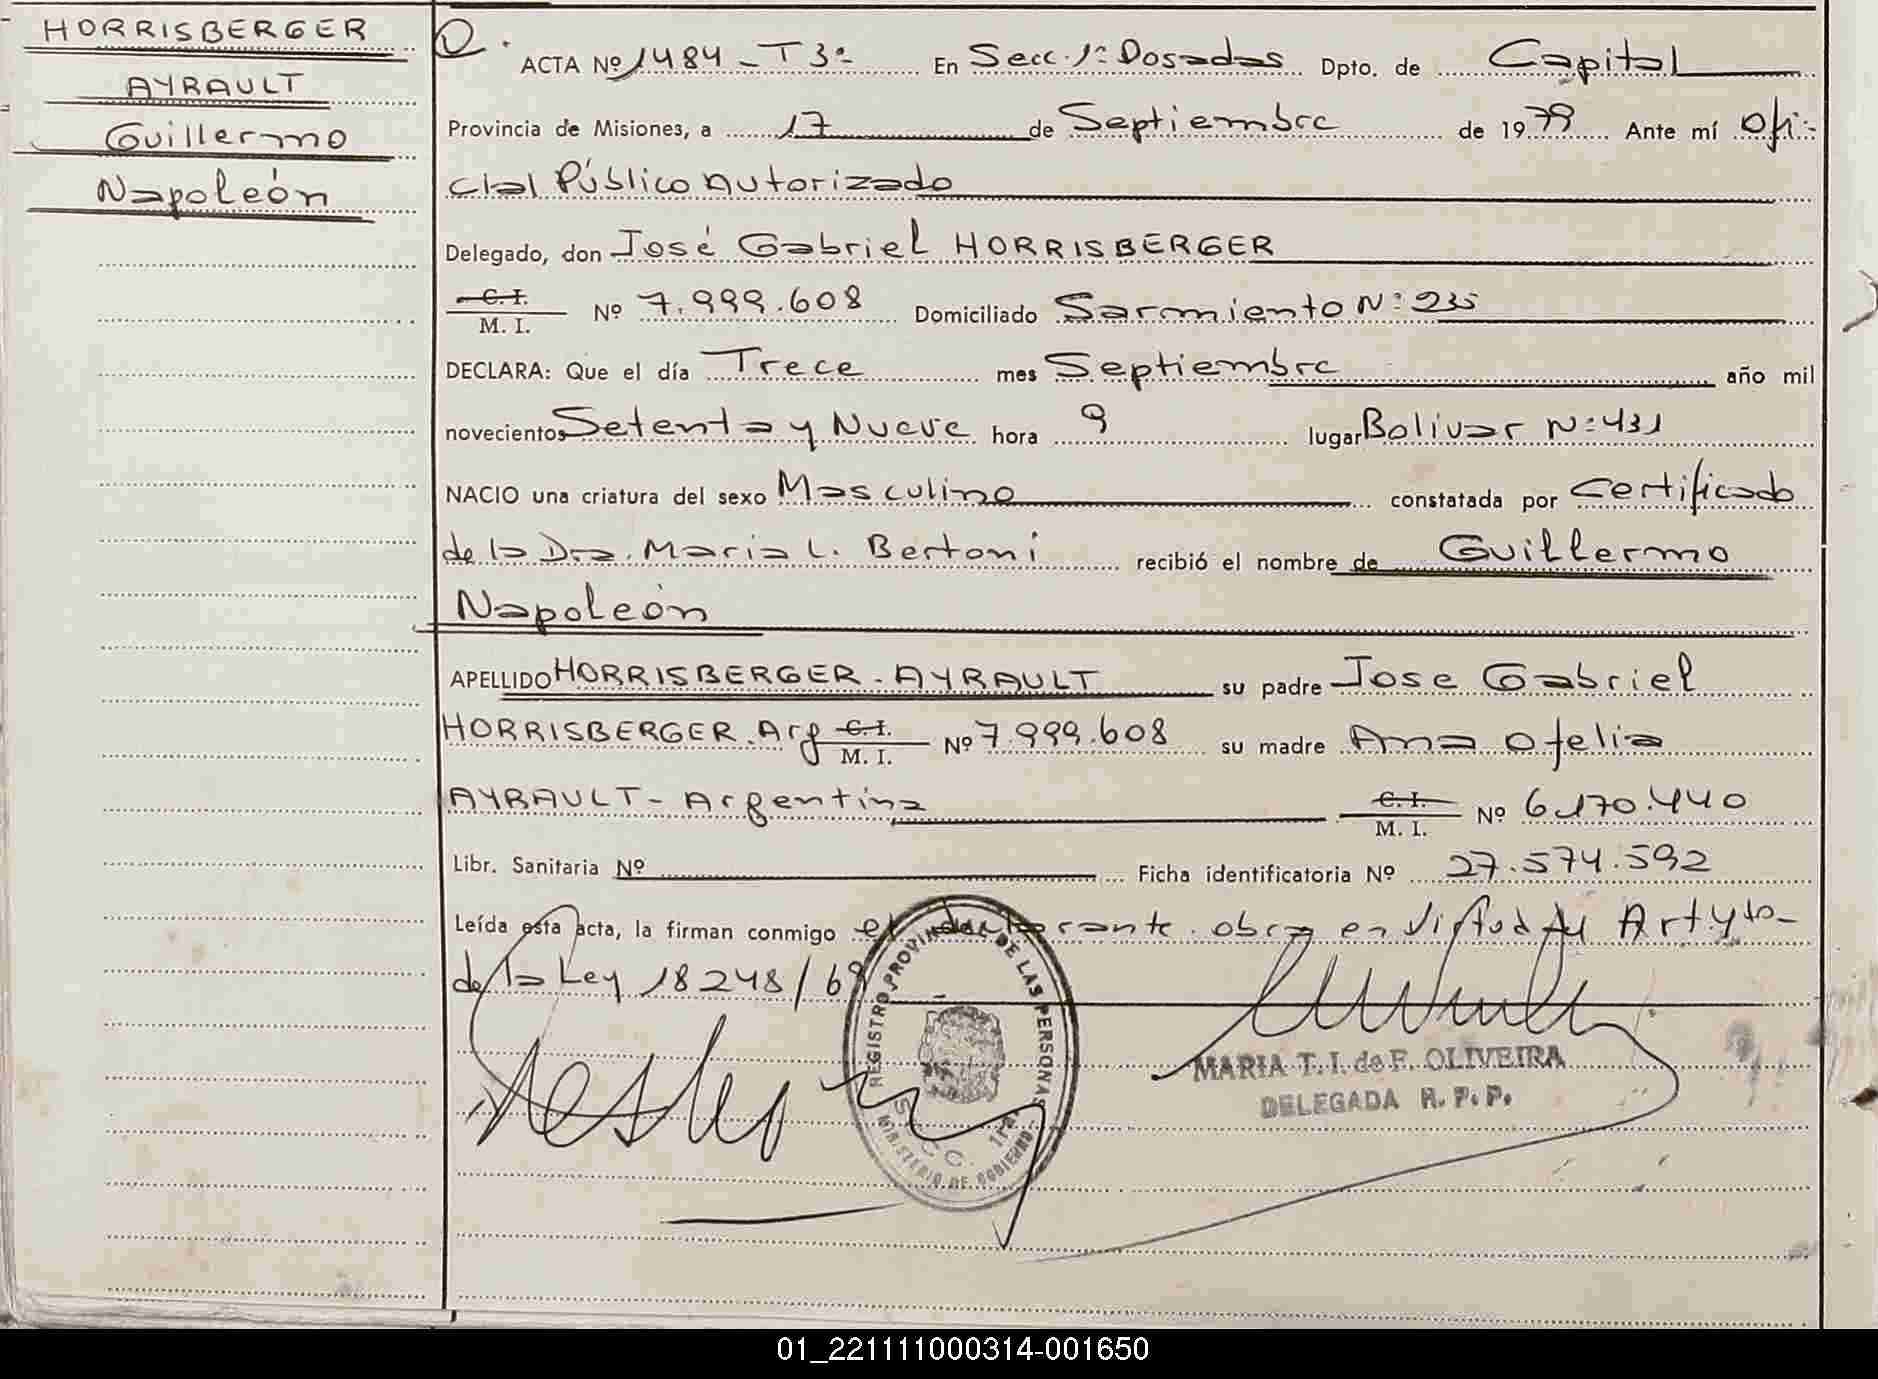 HORRISBERGER
AYRAULT
Guillermo
Napoleón
ACTA Nº 1484 - T 3º En Secc. 1º Posadas Dpto. de Capital
Provincia de Misiones, a 17 de Septiembre de 1979 Ante mí Ofi-
cial Público Autorizado
Delegado, don José Gabriel HORRISBERGER
C. I.
M. I. Nº 7.999.608 Domiciliado Sarmiento Nº 235
DECLARA: Que el día Trece mes Septiembre año mil
novecientos Setenta y Nueve hora 9 lugar Bolivar Nº 431
NACIO una criatura del sexo Masculino constatada por Certificado
de la Dra. Maria L. Bertoni recibió el nombre de Guillermo
Napoleón
APELLIDO HORRISBERGER - AYRAULT su padre Jose Gabriel
HORRISBERGER. Arg C. I. M. I. Nº 7.999.608 su madre Ana Ofelia
AYRAULT - Argentina C. I. M. I. Nº 6.170.440
Libr. Sanitaria Nº Ficha identificatoria Nº 27.574.592
Leída esta acta, la firman conmigo el declarante. obra en Virtud del Art 4to-
de la Ley 18248/69
REGISTRO PROVINCIAL DE LAS PERSONAS
SECC. 1ra
MINISTERIO DE GOBIERNO
MARIA T. I. de F. OLIVEIRA
DELEGADA R. P. P.
01_221111000314-001650